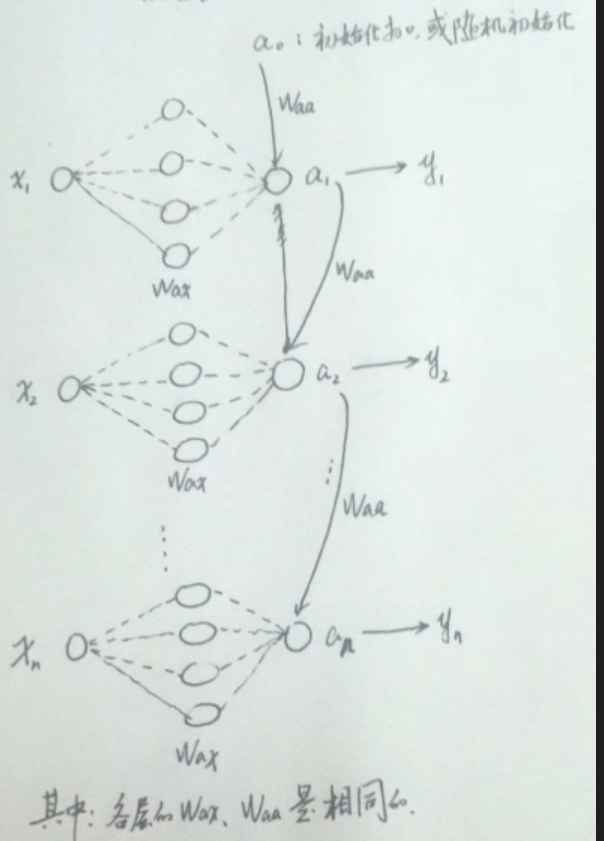 a₀：初始化为0，或随机初始化
Waa
x₁ a₁ y₁
Waa
Wax
x₂ a₂ y₂
Wax
Waa
xₙ aₙ yₙ
Wax
其中：各层的Wax、Waa是相同的.